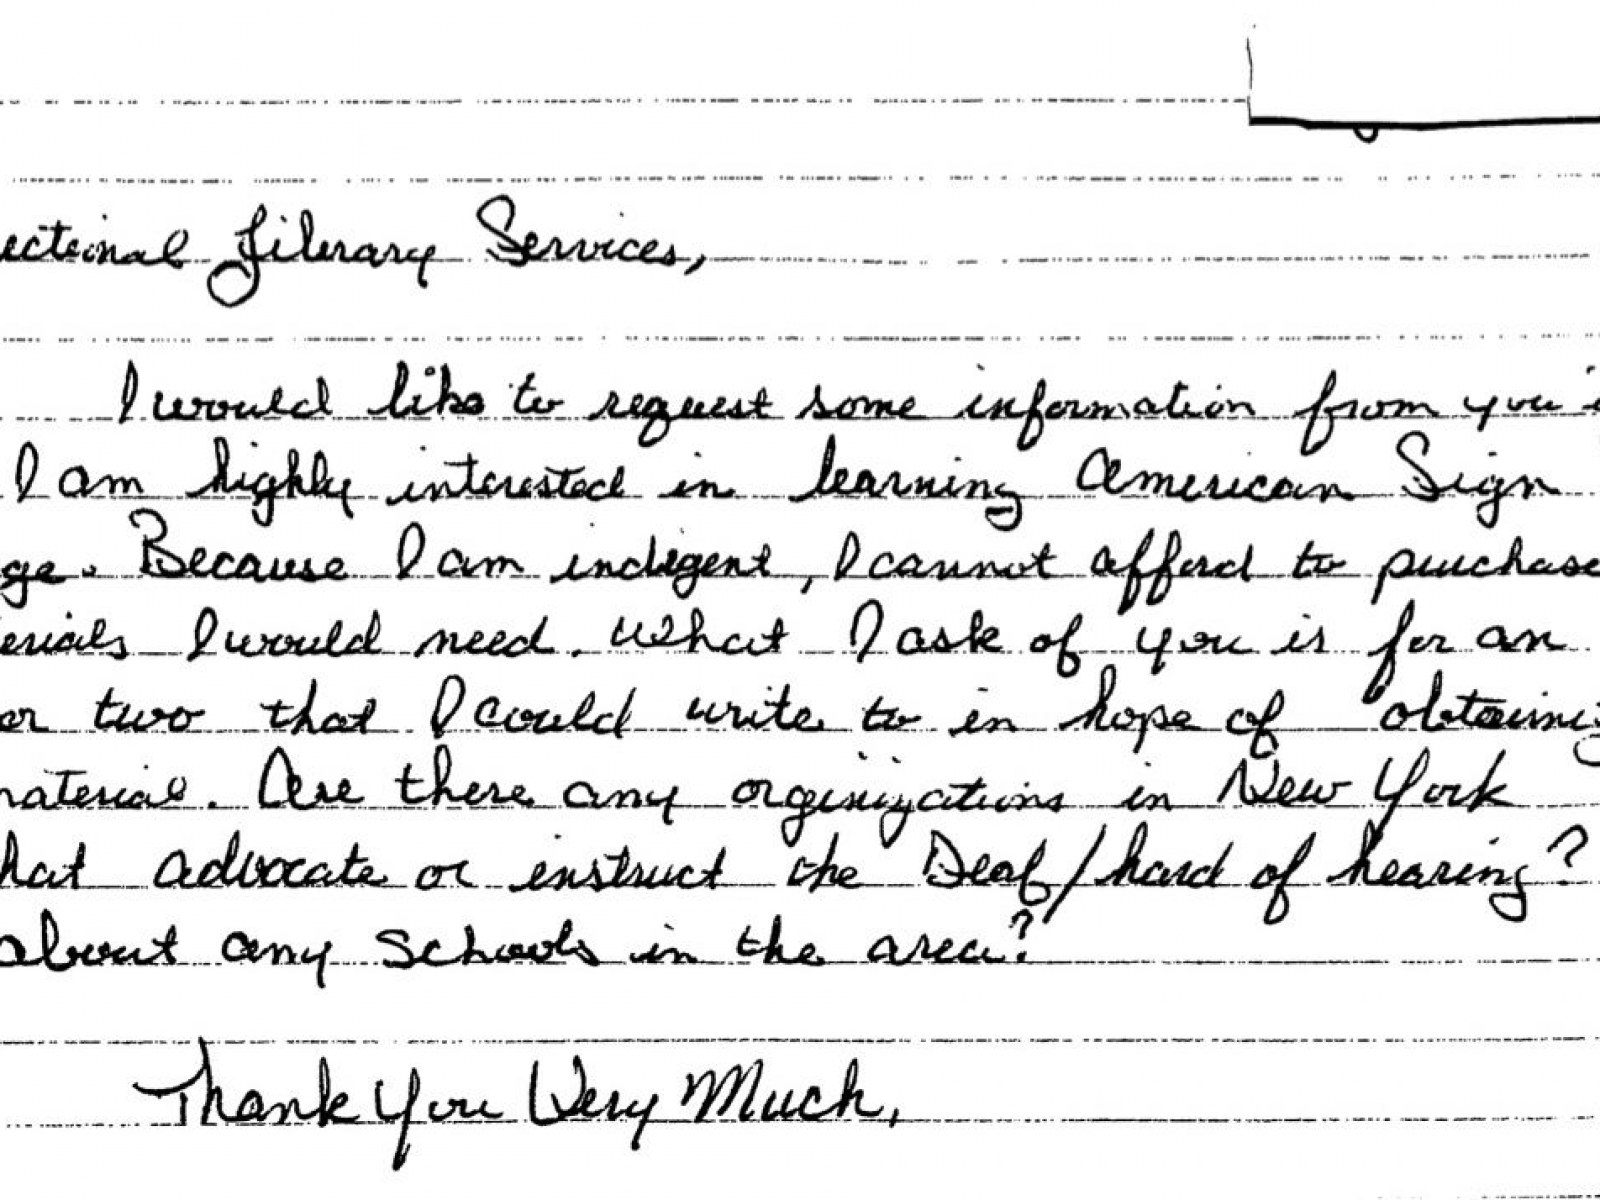 ectional Library Services,
I would like to request some information from you i
I am highly interested in learning American Sign
ge. Because I am indigent, I cannot afford to purchase
erials I would need. What I ask of you is for an
or two that I could write to in hope of obtaining
material. Are there any orginizations in New York
hat advocate or instruct the Deaf/hard of hearing?
about any schools in the area?
Thank You Very Much,